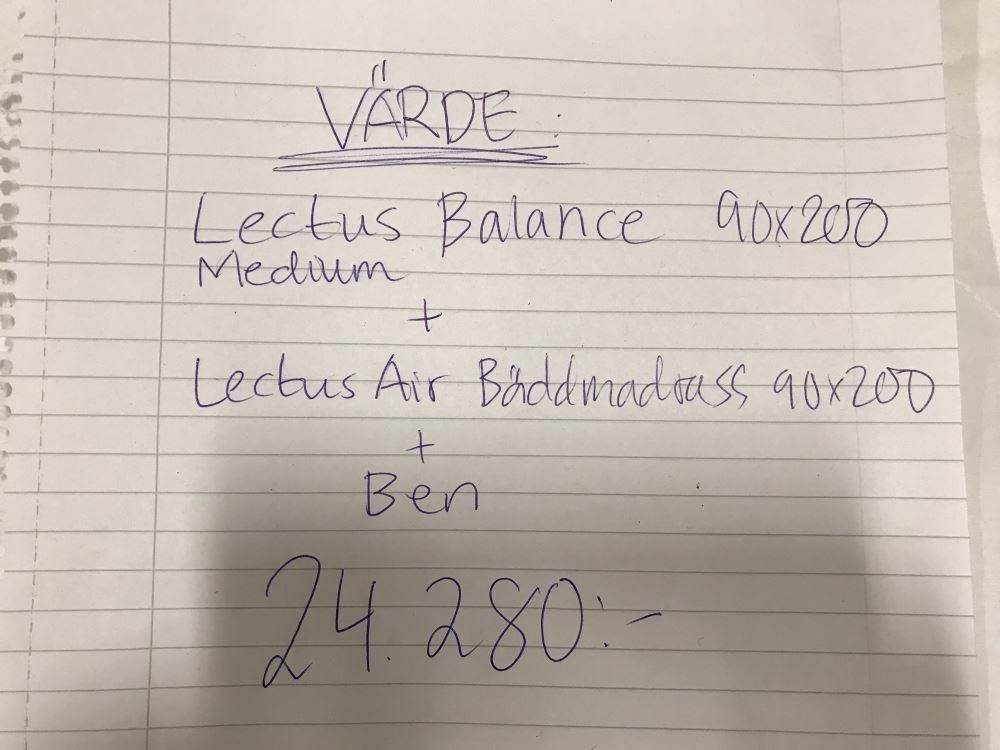 VÄRDE:
Lectus Balance 90x200
Medium
+
Lectus Air Bäddmadrass 90x200
+
Ben
24.280:-